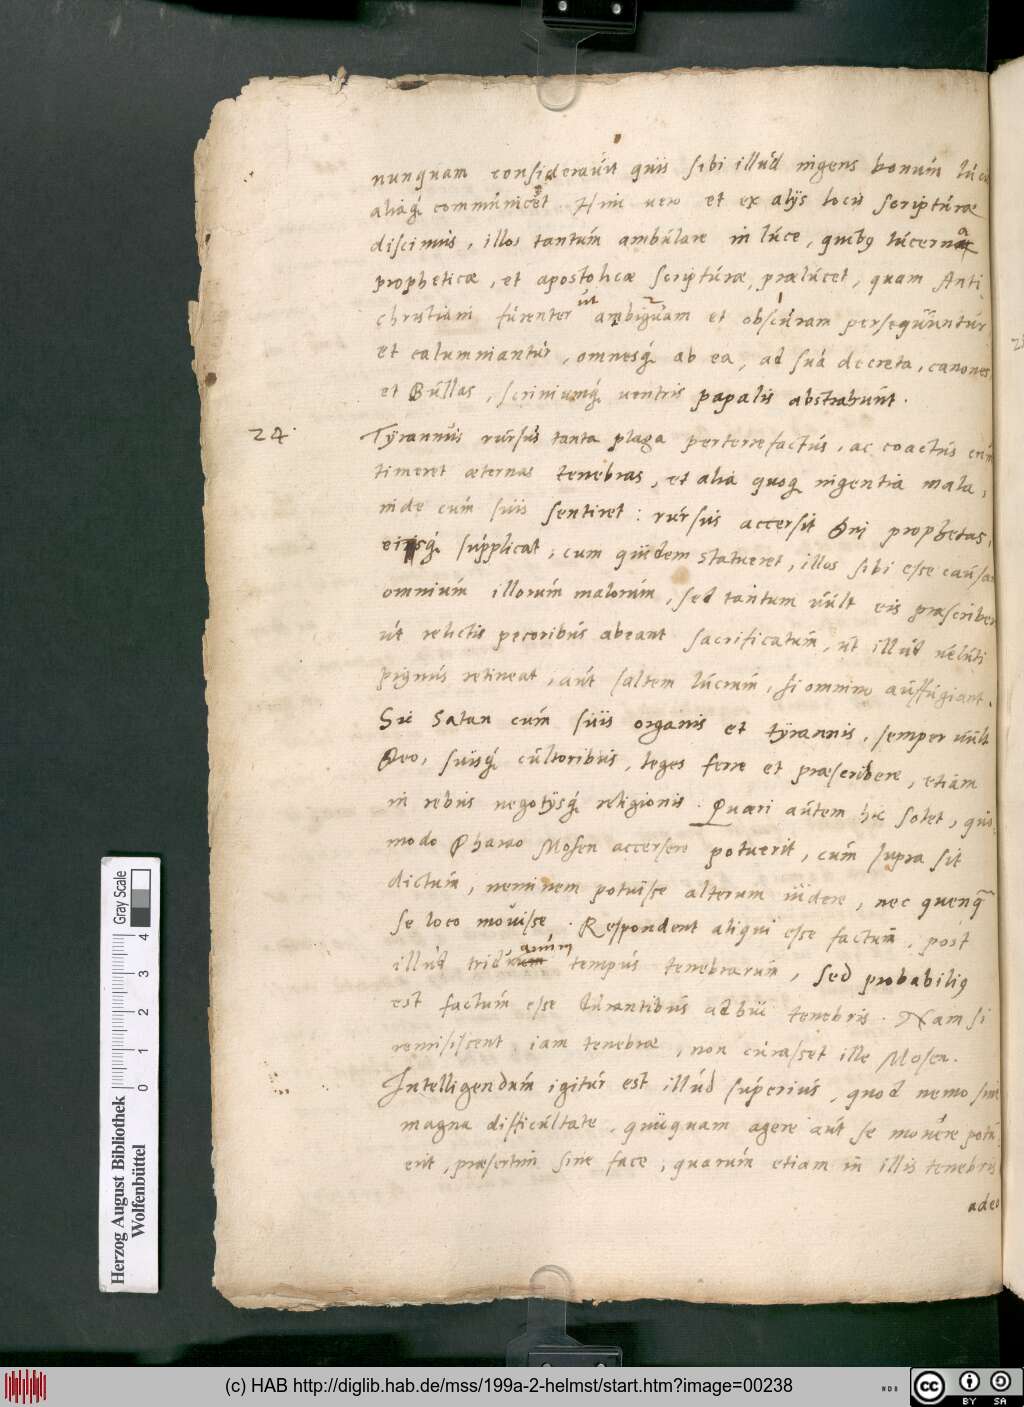 nunquam considerauit quis sibi illud ingens bonum luce
aliaq́; communicet. Hinc uero et ex alijs locis scripturæ
discimus, illos tantum ambulare in luce, quibꝯ lucerna
propheticæ, et apostolicæ scripturæ, prælucet, quam Anti
christiani furenter ut ambiguam et obscuram persequuntur
et calumniantur, omnesq́; ab ea, ad sua decreta, canones,
et Bullas, scriniumq́; uentris papalis abstrahunt.
24. Tyrannus rursus tanta plaga perterrefactus, ac coactus cum
timeret æternas tenebras, et alia quoq; ingentia mala,
inde cum suis sentiret: rursus accersit Dni prophetas,
eisq́; supplicat, cum quidem statueret, illos sibi esse causas
omnium illorum malorum, sed tantum uult eis præscribere
ut relictis pecoribus abeant sacrificatum, ut illud ueluti
pignus retineat, aut saltem lucrum, si omnino auffugiant.
Sic Satan cum suis organis et tyrannis, semper uult
Deo, suisq́; cultoribus, leges ferre et præscribere, etiam
in rebus negotijsq́; religionis. Quæri autem hic solet, quo
modo Pharao Mosen accersere potuerit, cum supra sit
dictum, neminem potuisse alterum uidere, nec quenq̃
se loco mouisse. Respondent aliqui esse factum, post
illud triduanum tempus tenebrarum, sed probabiliꝯ
est factum esse durantibus adhuc tenebris. Nam si
remisissent iam tenebræ, non curasset ille Mosen.
Intelligendum igitur est illud superius, quod nemo sine
magna difficultate, quicquam agere aut se mouere potu
erit, præsertim sine face, quarum etiam in illis tenebris
adeo
Gray Scale
0 1 2 3 4
Herzog August Bibliothek
Wolfenbüttel
(c) HAB http://diglib.hab.de/mss/199a-2-helmst/start.htm?image=00238
cc BY SA